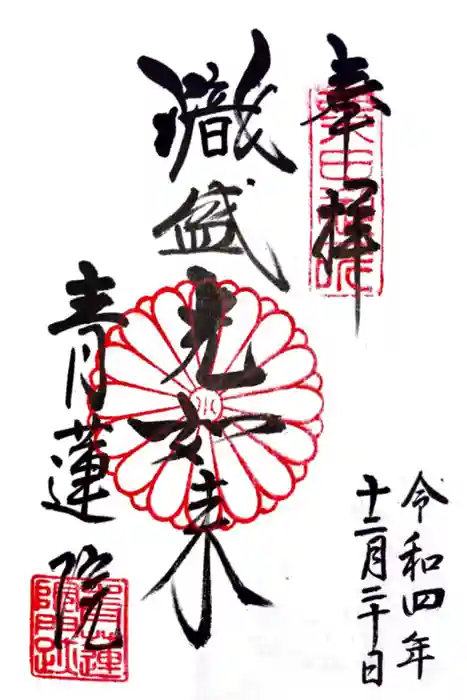 奉拝
熾盛光如来
青蓮院
令和四年
十二月二十日